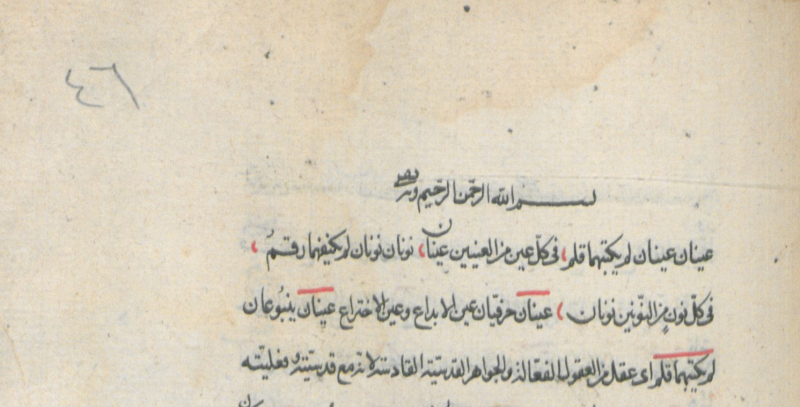 ٤٦
بسم الله الرحمن الرحيم وبه نستعين
عينان عينان لم يكتبهما قلم، في كلّ عين من العينين عينان، نونان نونان لم يكتبهما رقمُ،
في كلّ نونٍ من النّونين نونان، عينان حرفيّان عين الابداع وعين الاختراع عينان ينبُوعان
لم يكتبهما قلم اى عقل من العقول الفعّالة والجواهر القدسيّة القادسة لانه مع قدسيّته وفعليّته